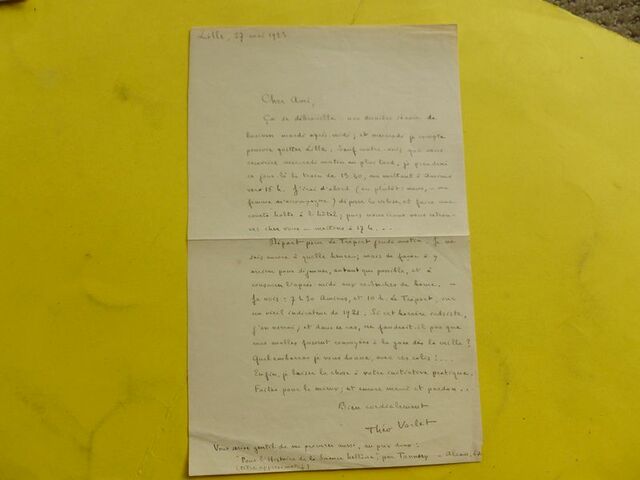 Lille, 27 mai 1923
Cher Ami,
Ça se débrouille : une dernière séance de
besogne mardi après-midi ; et mercredi je compte
pouvoir quitter Lille. Sauf contre-avis que vous
recevriez mercredi matin au plus tard, je prendrai
ce jour-là le train de 13.30, me mettant à Amiens
vers 15 h. J'irai d'abord (ou plutôt : nous, — ma
femme m'accompagne) déposer la valise, et faire une
courte halte à l'hôtel ; puis nous irons vous retrou-
ver chez vous — mettons à 17 h. ...
Départ pour Le Tréport jeudi matin. Je ne
sais encore à quelle heure ; mais de façon à y
arriver pour déjeuner, autant que possible, et à
consacrer l'après-midi aux recherches de home. —
Je vois : 7 h 30 Amiens, et 10 h. Le Tréport, sur
un vieil indicateur de 1921. Si cet horaire subsiste,
j'en verrai ; et dans ce cas, ne faudrait-il pas que
mes malles fussent convoyées à la gare dès la veille ?
Quel embarras je vous donne, avec ces colis ! ...
Enfin, je laisse la chose à votre initiative pratique.
Faites pour le mieux ; et encore merci et pardon ...
Bien cordialement
Théo Varlet
Vous seriez gentil de me procurer aussi, au prix doux :
"Pour l'Histoire de la Science hellène", par Tannery — Alcan,
(titre approximatif)